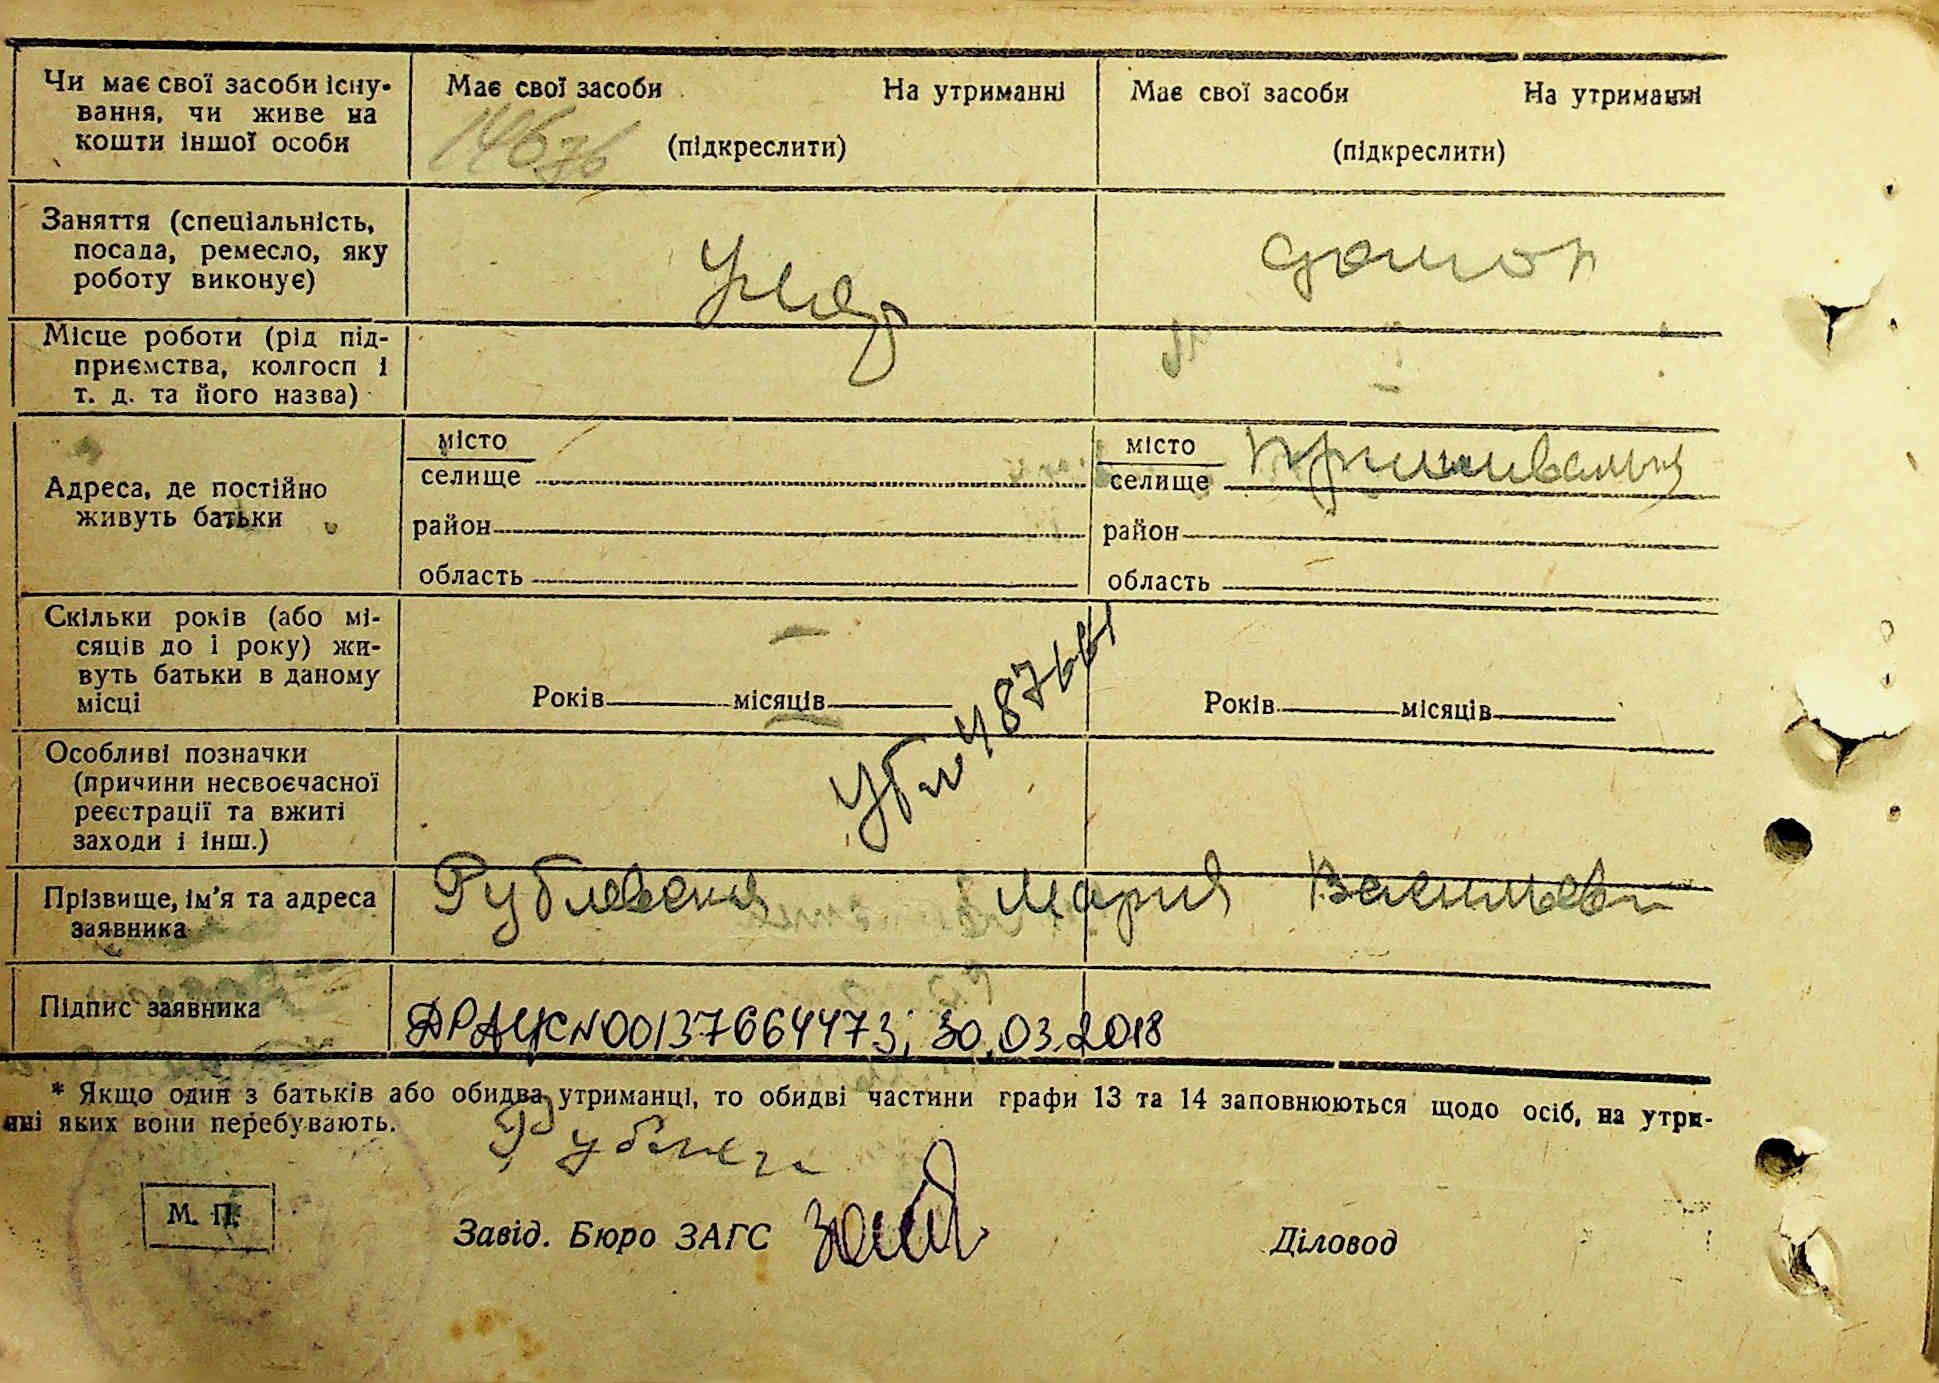 Чи має свої засоби існу-
вання, чи живе на
кошти іншої особи
Має свої засоби На утриманні
(підкреслити)
Має свої засоби На утриманні
(підкреслити)
Заняття (спеціальність,
посада, ремесло, яку
роботу виконує)
домох
Місце роботи (рід під-
приємства, колгосп і
т. д. та його назва)
Адреса, де постійно
живуть батьки
місто
селище
район
область
місто
селище
район
область
Скільки років (або мі-
сяців до 1 року) жи-
вуть батьки в даному
місці
Років місяців
Років місяців
Особливі позначки
(причини несвоєчасної
реєстрації та вжиті
заходи і інш.)
Прізвище, ім'я та адреса
заявника
Рублевская Мария Васильевн
Підпис заявника
ДРАЦС N00137664473; 30.03.2018
* Якщо один з батьків або обидва утриманці, то обидві частини графи 13 та 14 заповнюються щодо осіб, на утри-
нні яких вони перебувають.
М. П.
Завід. Бюро ЗАГС
Діловод